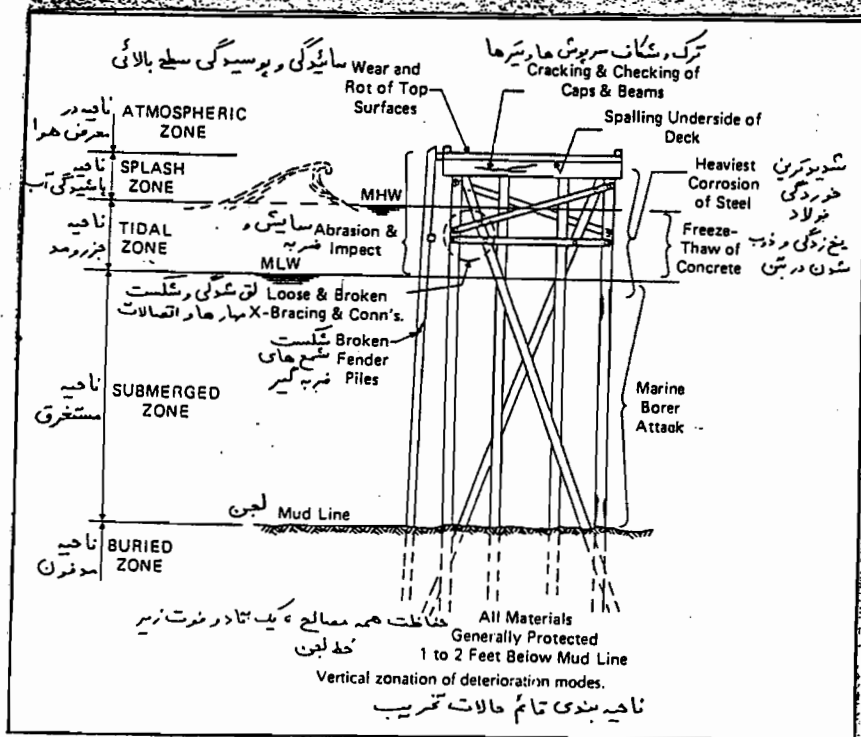 سائیدگی و پوسیدگی سطح بالائی
Wear and
Rot of Top
Surfaces
ترک و شکاف سرپوش ها و تیرها
Cracking & Checking of
Caps & Beams
Spalling Underside of
Deck
ناحیه در
معرض هوا
ATMOSPHERIC
ZONE
ناحیه
پاشیدگی آب
SPLASH
ZONE
MHW
Heaviest
Corrosion
of Steel
شدیدترین
خوردگی
فولاد
ناحیه
جزرومد
TIDAL
ZONE
سایش و
ضربه
Abrasion &
Impect
Freeze-
Thaw of
Concrete
یخ زدگی و ذوب
شدن در بتن
MLW
لق شدگی و شکست
مهارها و اتصالات
Loose & Broken
X-Bracing & Conn's.
شکست
شمع های
ضربه گیر
Broken
Fender
Piles
ناحیه
مستغرق
SUBMERGED
ZONE
Marine
Borer
Attack
لجن
Mud Line
ناحیه
مدفون
BURIED
ZONE
حفاظت همه مصالح، یک تا دو فوت زیر
خط لجن
All Materials
Generally Protected
1 to 2 Feet Below Mud Line
Vertical zonation of deterioration modes.
ناحیه بندی قائم حالات تخریب